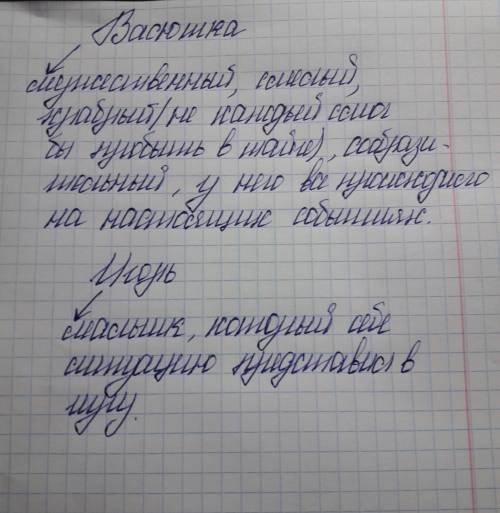 Васюшка
мужественный, смелый,
храбрый (не каждый смог
бы пробыть в тайге), сообрази-
тельный, у него всё происходило
на настоящих событиях.
Игорь
мальчик, который себе
ситуацию представил в